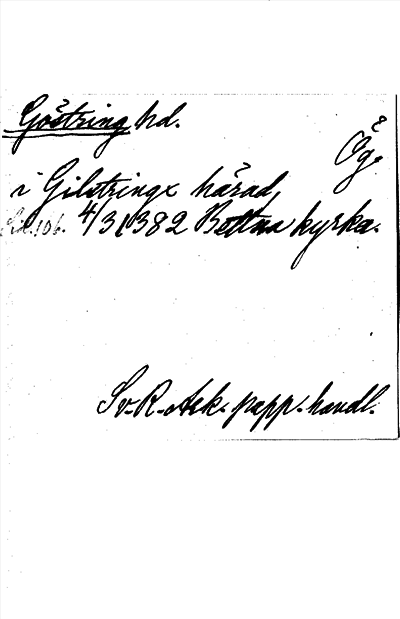 Göstring hd.
Ög.
i Gilstringx härad,
4/3 1382 Bettna kyrka.
Sv. R. Ark. papp. handl.